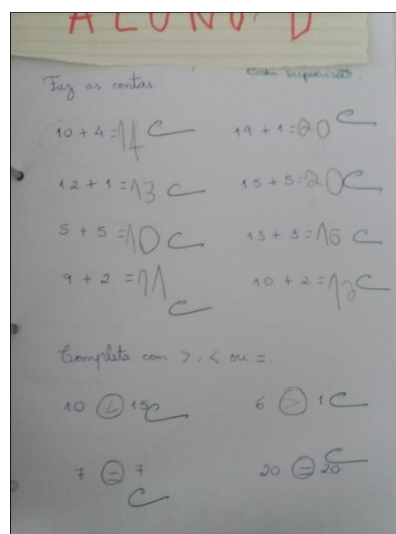 ALUNO D
Com supervisão.
Faz as contas.
10 + 4 = 14 C 19 + 1 = 20 C
12 + 1 = 13 C 15 + 5 = 20 C
5 + 5 = 10 C 13 + 3 = 16 C
9 + 2 = 11 C 10 + 2 = 12 C
Completa com >, < ou =.
10 < 15 C 6 > 1 C
7 = 7 C 20 = 20 C